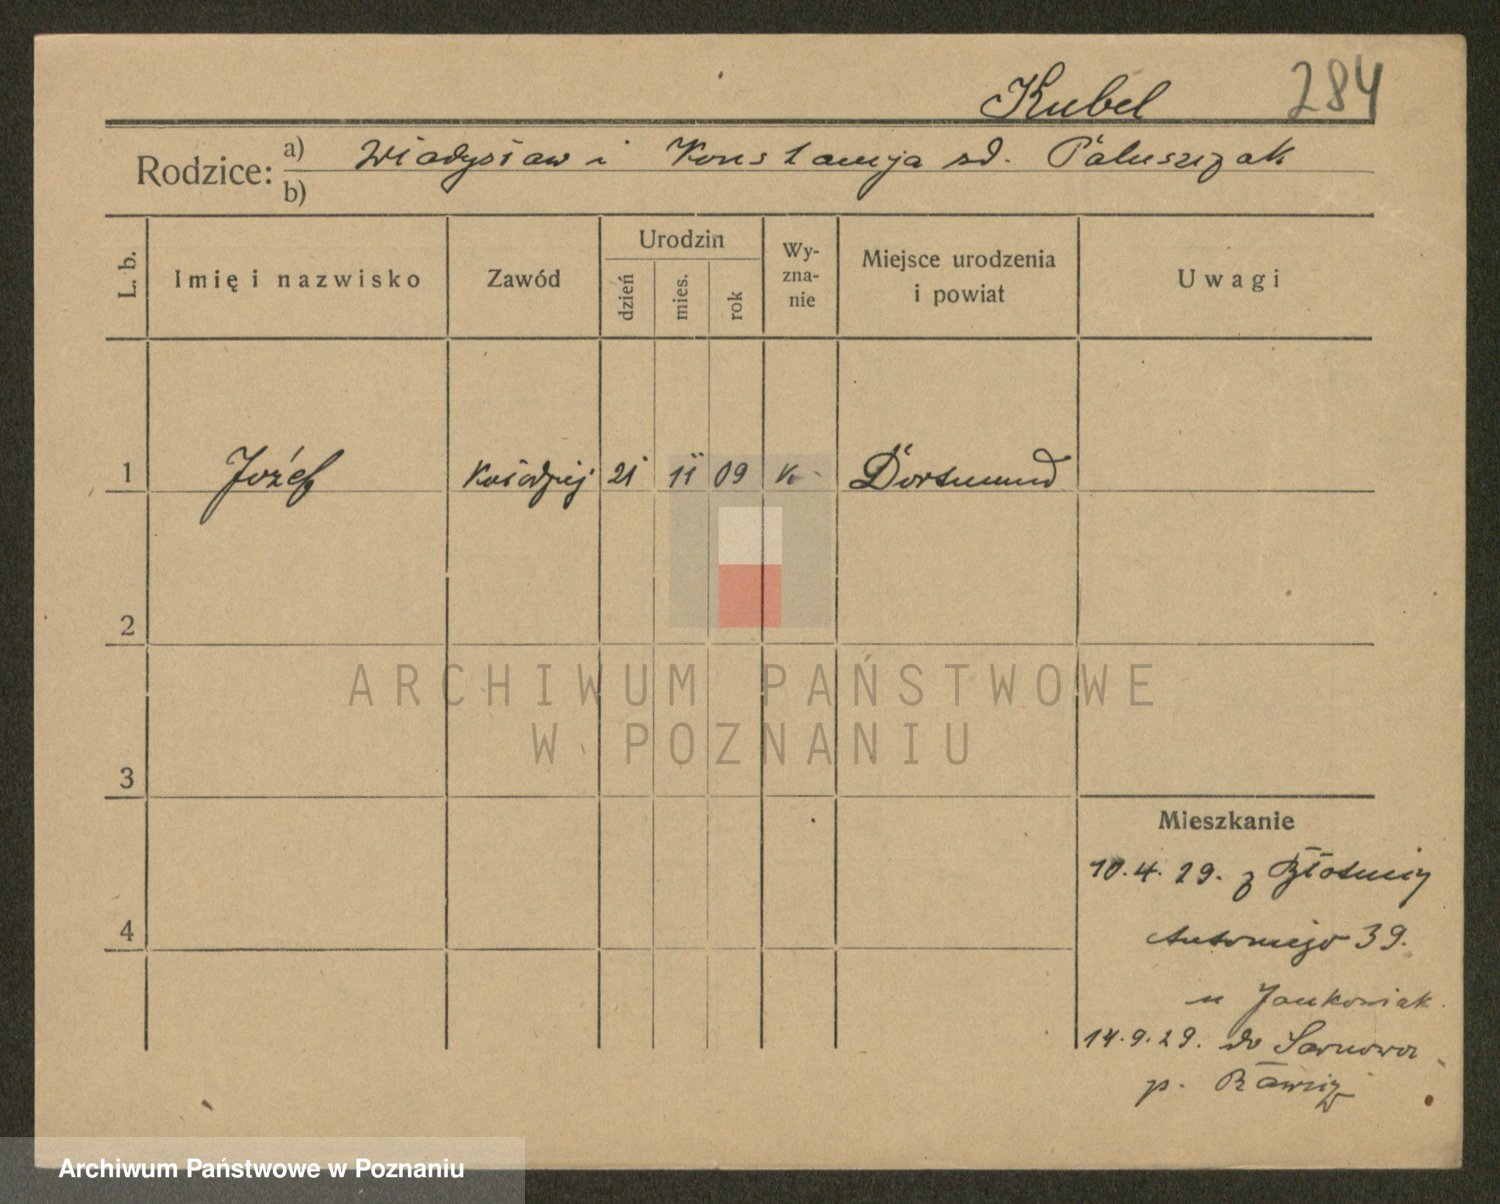 Kubel 284
Rodzice: a) Władysław i Konstancja zd. Paluszczak
b)
L. b. Imię i nazwisko Zawód Urodzin dzień mies. rok Wy-zna-nie Miejsce urodzenia i powiat Uwagi
1 Józef Kołodziej 21 11 09 k Dortmund
2
ARCHIWUM PAŃSTWOWE
W POZNANIU
3
Mieszkanie
10.4.29. z Błotnicy
4
Antoniego 39.
u Jankowiak.
14.9.29. do Sarnowa
p. Rawicz
Archiwum Państwowe w Poznaniu